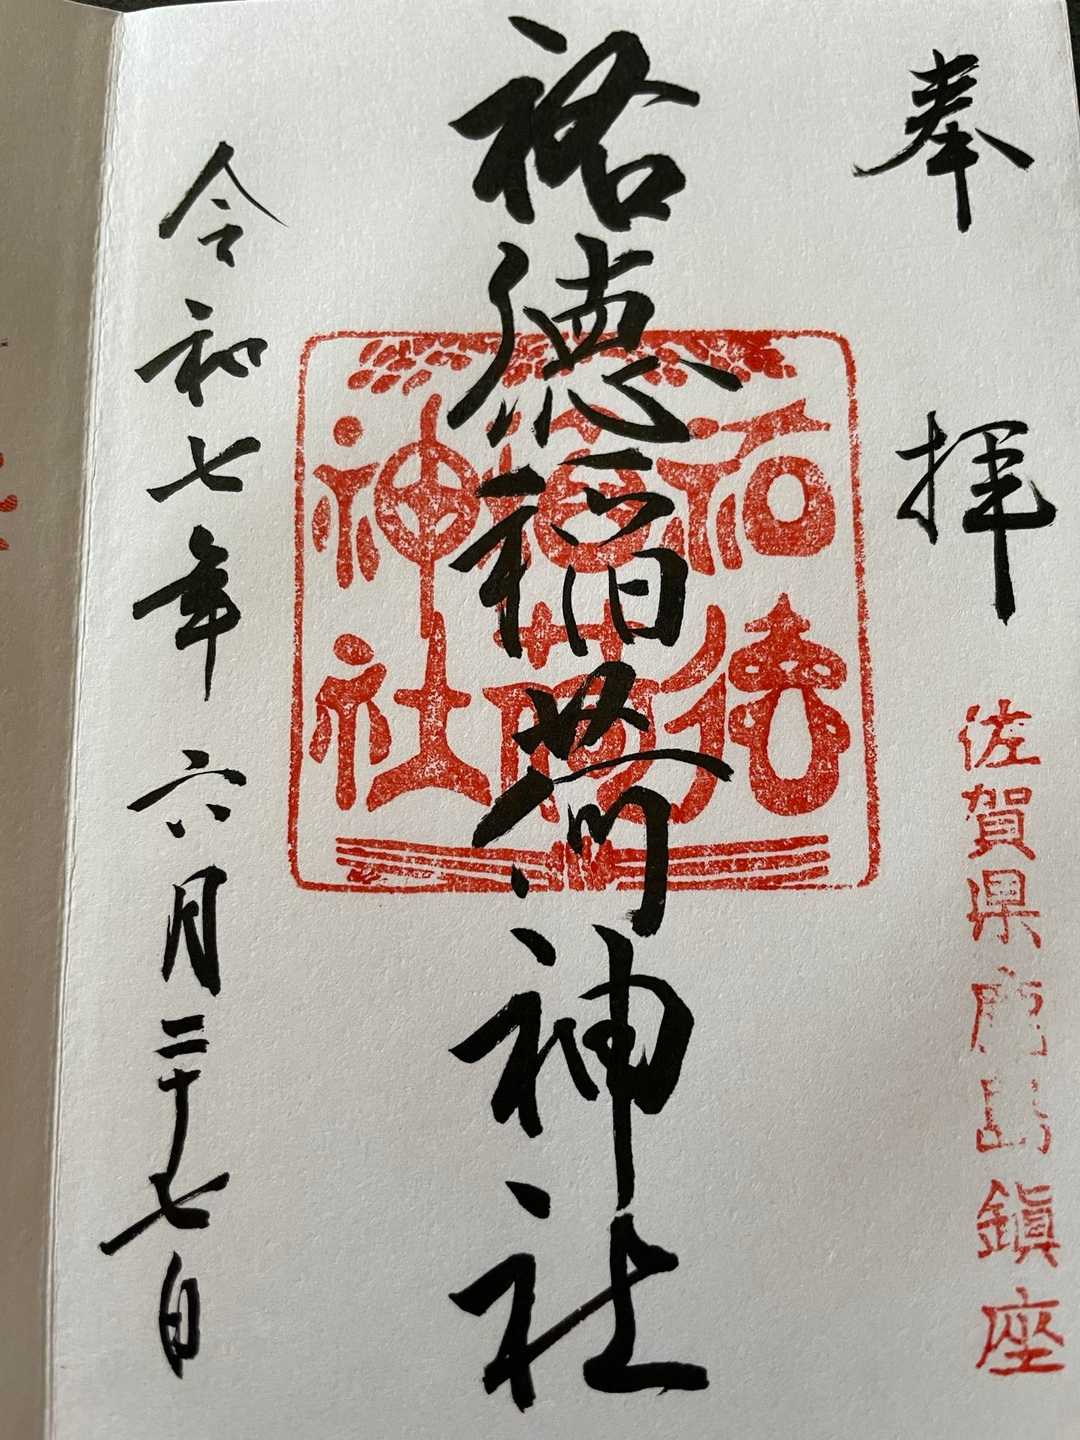 奉拝
佐賀県鹿島鎮座
祐徳稲荷神社
祐徳稲荷神社
令和七年六月二十七日